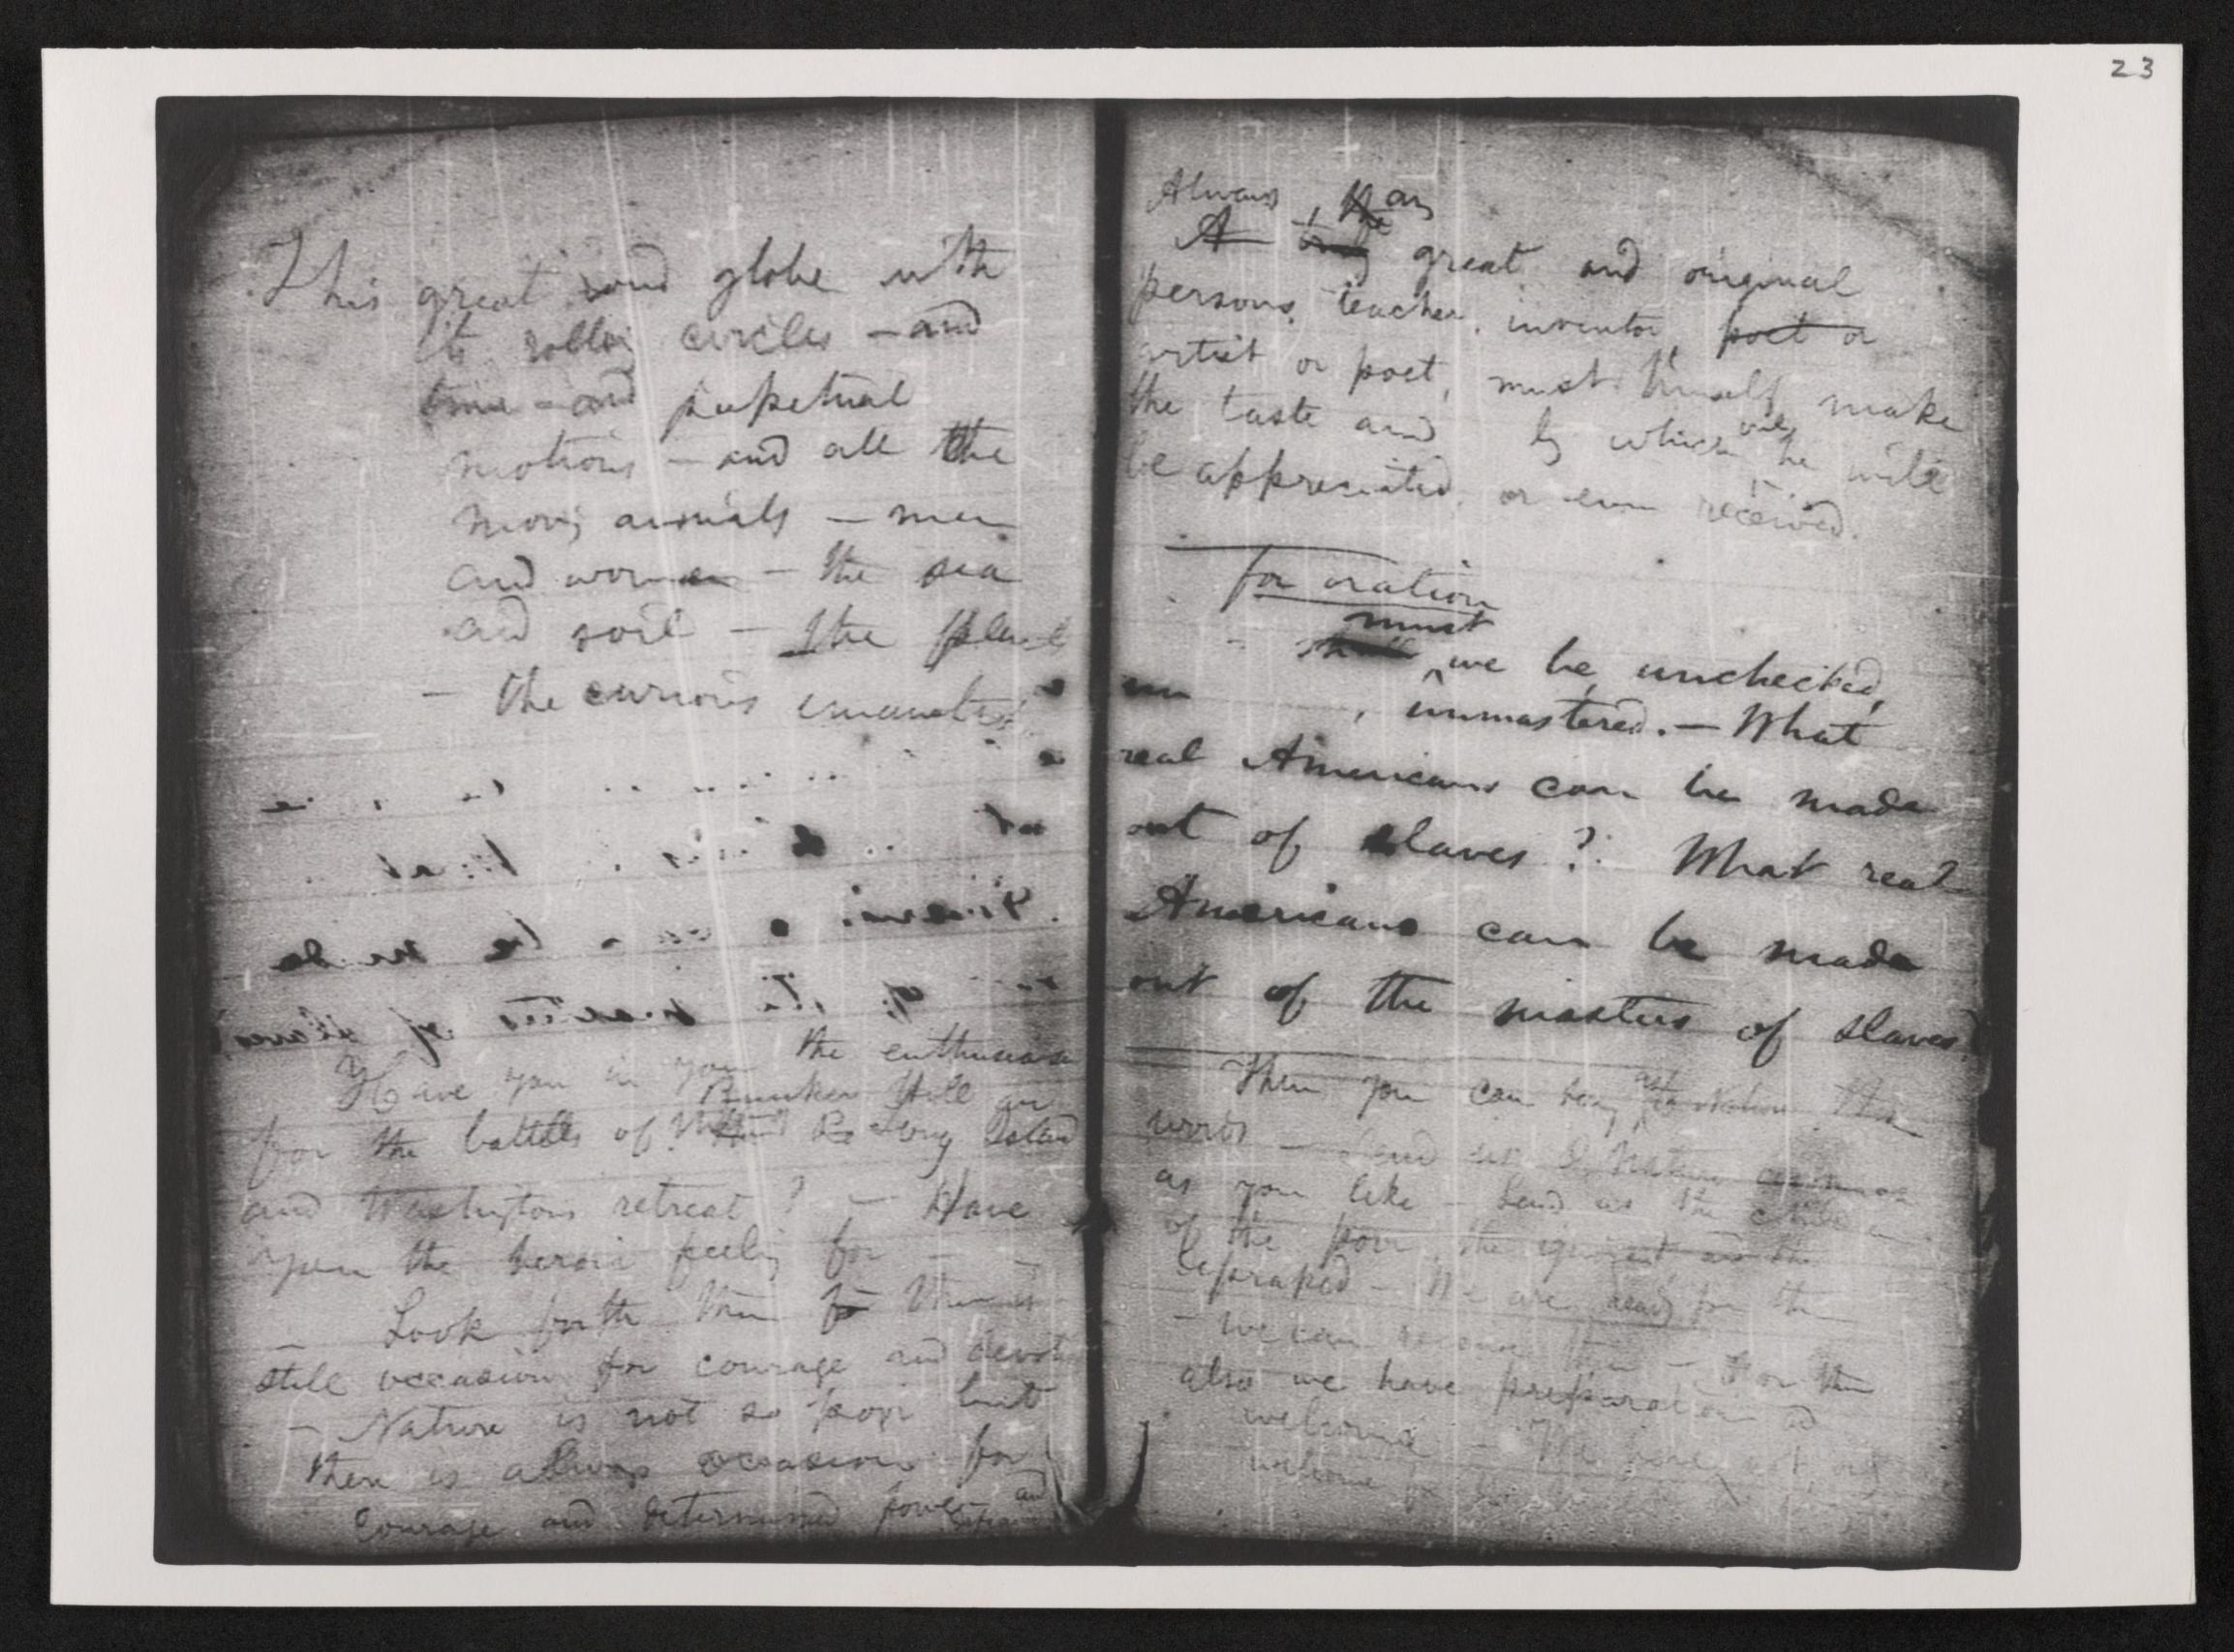 23
This great round globe with
its rolling circles – and
time – and perpetual
motions – and all the
moving animals – men
and women – the sea
and soil – the
– the curious
Have you in you the enthusiasm
Bunker Hill or
for the battles of Long Island
and Washingtons retreat? – Have
you the heroic feeling for –
– Look forth then for there is
still occasion for courage and
– Nature is not so poor but
there is always occasion for
courage and determined power and
Always the any
A great and original
persons, teacher, inventor, poet or
artist or poet, must himself make
the taste and by which only he will
be appreciated, or even received.
For oration
must
we be unchecked,
unmastered. – What
real Americans can be made
out of slaves? What real
Americans can be made
out of the masters of slaves?
Then you can say to Nature this
words – Send us O Nature as many
as you like – Send us the children
of the poor, the ignorant and the
depraved – We are ready for them
– we can receive them – For them
also we have preparation and
welcome – We have not only
welcome for